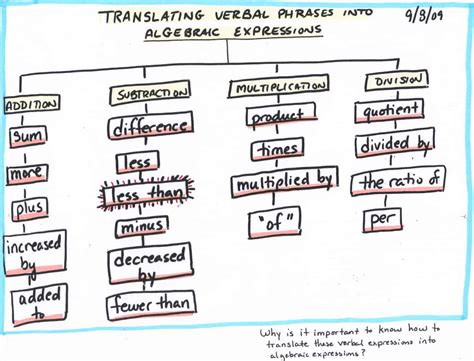 TRANSLATING VERBAL PHRASES INTO
ALGEBRAIC EXPRESSIONS
9/8/09
ADDITION
sum
more
plus
increased
by
added
to
SUBTRACTION
difference
less
less than
minus
decreased
by
fewer than
MULTIPLICATION
product
times
multiplied by
"of"
DIVISION
quotient
divided by
the ratio of
per
Why is it important to know how to
translate these verbal expressions into
algebraic expressions?